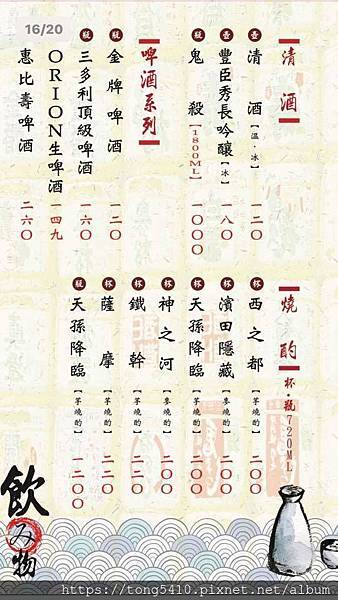 16/20
清酒
壺 清酒【温·冰】 一二〇
壺 豐臣秀長吟釀【冰】 一八〇
瓶 鬼殺【1800ML】 一〇〇〇
啤酒系列
瓶 金牌啤酒 一二〇
瓶 三多利頂級啤酒 一六〇
ORION生啤酒 一四九
惠比壽啤酒 二六〇
燒酌 杯·瓶720ML
杯 西之都【芋燒酌】 二〇〇
杯 濱田隱藏【麥燒酌】 二〇〇
杯 天孫降臨【芋燒酌】 二〇〇
杯 神之河【麥燒酌】 二〇〇
杯 鐵幹【芋燒酌】 二二〇
杯 薩摩【芋燒酌】 二二〇
瓶 天孫降臨【芋燒酌】 一二〇〇
飲み物
https://tong5410.pixnet.net/album